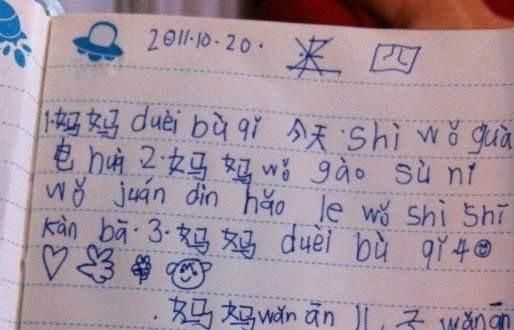 2011·10·20· 四
1·妈妈 duèi bù qǐ 今天·shì wǒ guà
电 huà 2·妈妈 wǒ gào sù nǐ
wǒ juán dìn hǎo le wǒ shì shī
kàn bā·3·妈妈 duèi bù qǐ 4
·妈妈wǎn ān 儿子 wǎnān